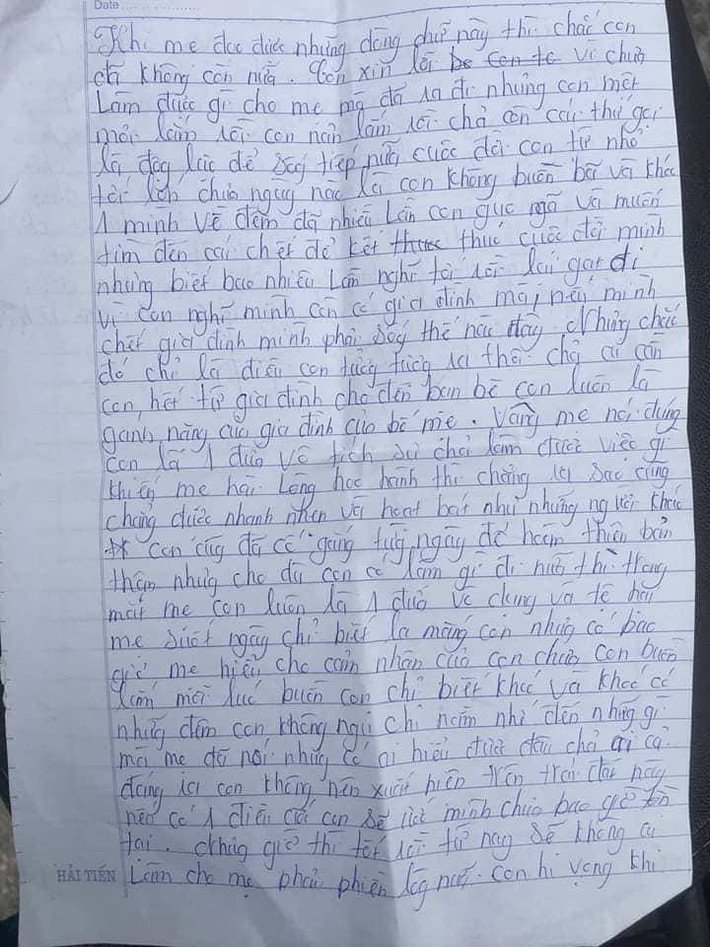 Date
Khi mẹ đọc được những dòng chữ này thì chắc con
đã không còn nữa. Con xin lỗi vì chưa
làm được gì cho mẹ mà đã ra đi nhưng con mệt
mỏi lắm rồi con nản lắm rồi chả còn cái thứ gọi
là động lực để sống tiếp nữa cuộc đời con từ nhỏ
tới lớn chưa ngày nào là con không buồn bã và khóc
1 mình về đêm đã nhiều lần con gục ngã và muốn
tìm đến cái chết để kết thúc cuộc đời mình
nhưng biết bao nhiêu lần nghĩ tới rồi lại gạt đi
vì con nghĩ mình còn có gia đình mà, nếu mình
chết gia đình mình phải sống thế nào đây. Nhưng chắc
đó chỉ là điều con tưởng tượng ra thôi chả ai cần
con, hết từ gia đình cho đến bạn bè con luôn là
gánh nặng của gia đình của bố mẹ. Vâng mẹ nói đúng
con là 1 đứa vô tích sự chả làm được việc gì
khiến mẹ hài lòng học hành thì chẳng ra sao cũng
chẳng được nhanh nhẹn và hoạt bát như những người khác
con cũng đã cố gắng từng ngày để hoàn thiện bản
thân nhưng cho dù con có làm gì đi nữa thì trong
mắt mẹ con luôn là 1 đứa vô dụng và tệ hại
mẹ suốt ngày chỉ biết la mắng con nhưng có bao
giờ mẹ hiểu cho cảm nhận của con chưa con buồn
lắm mỗi lúc buồn con chỉ biết khóc và khóc có
những đêm con không ngủ chỉ nằm nhớ đến những gì
mà mẹ đã nói nhưng có ai hiểu được đâu chả ai cả.
đáng ra con không nên xuất hiện trên trái đất này
nếu có 1 điều ước con sẽ ước mình chưa bao giờ tồn
tại. Nhưng giờ thì tốt rồi từ nay sẽ không ai
HẢI TIẾN làm cho mẹ phải phiền lòng nữa. con hi vọng khi